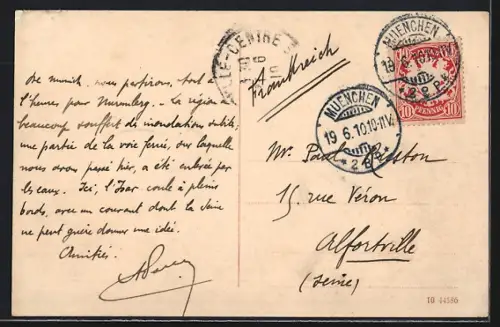 De Munich, nous partirons, tout à
l'heure pour Nuremberg. — La région a
beaucoup souffert des inondations subites,
une partie de la voie ferrée, sur laquelle
nous avons passé hier, a été enlevée par
les eaux. Ici, l'Isar coule à pleins
bords, avec un courant dont la Seine
ne peut guère donner une idée.
Amitiés.
LLE-CENTRE
Frankreich
MUENCHEN
19 6.10.10-11V.
* 2 B.P. *
MUENCHEN
19 6.10.10-11V.
* 2 B.P. *
10 PFENNIG 10
Mr. Paul
15, rue Véron
Alfortville
(Seine)
10 44586